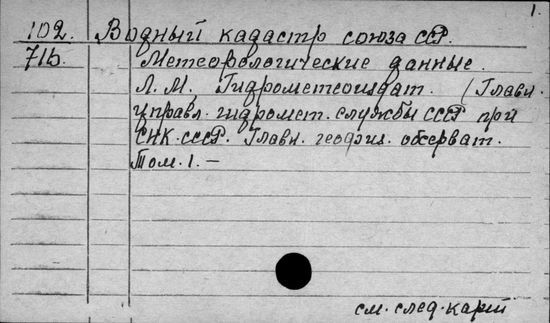 1.
102. Водный кадастр союза ССР.
715. Метеорологические данные.
Л. М. Гидрометеоиздат. (Главн.
управл. гидромет. службы СССР при
СНК. СССР. Главн. геофиз. обсерват.
Том. 1. —
см. след. карт